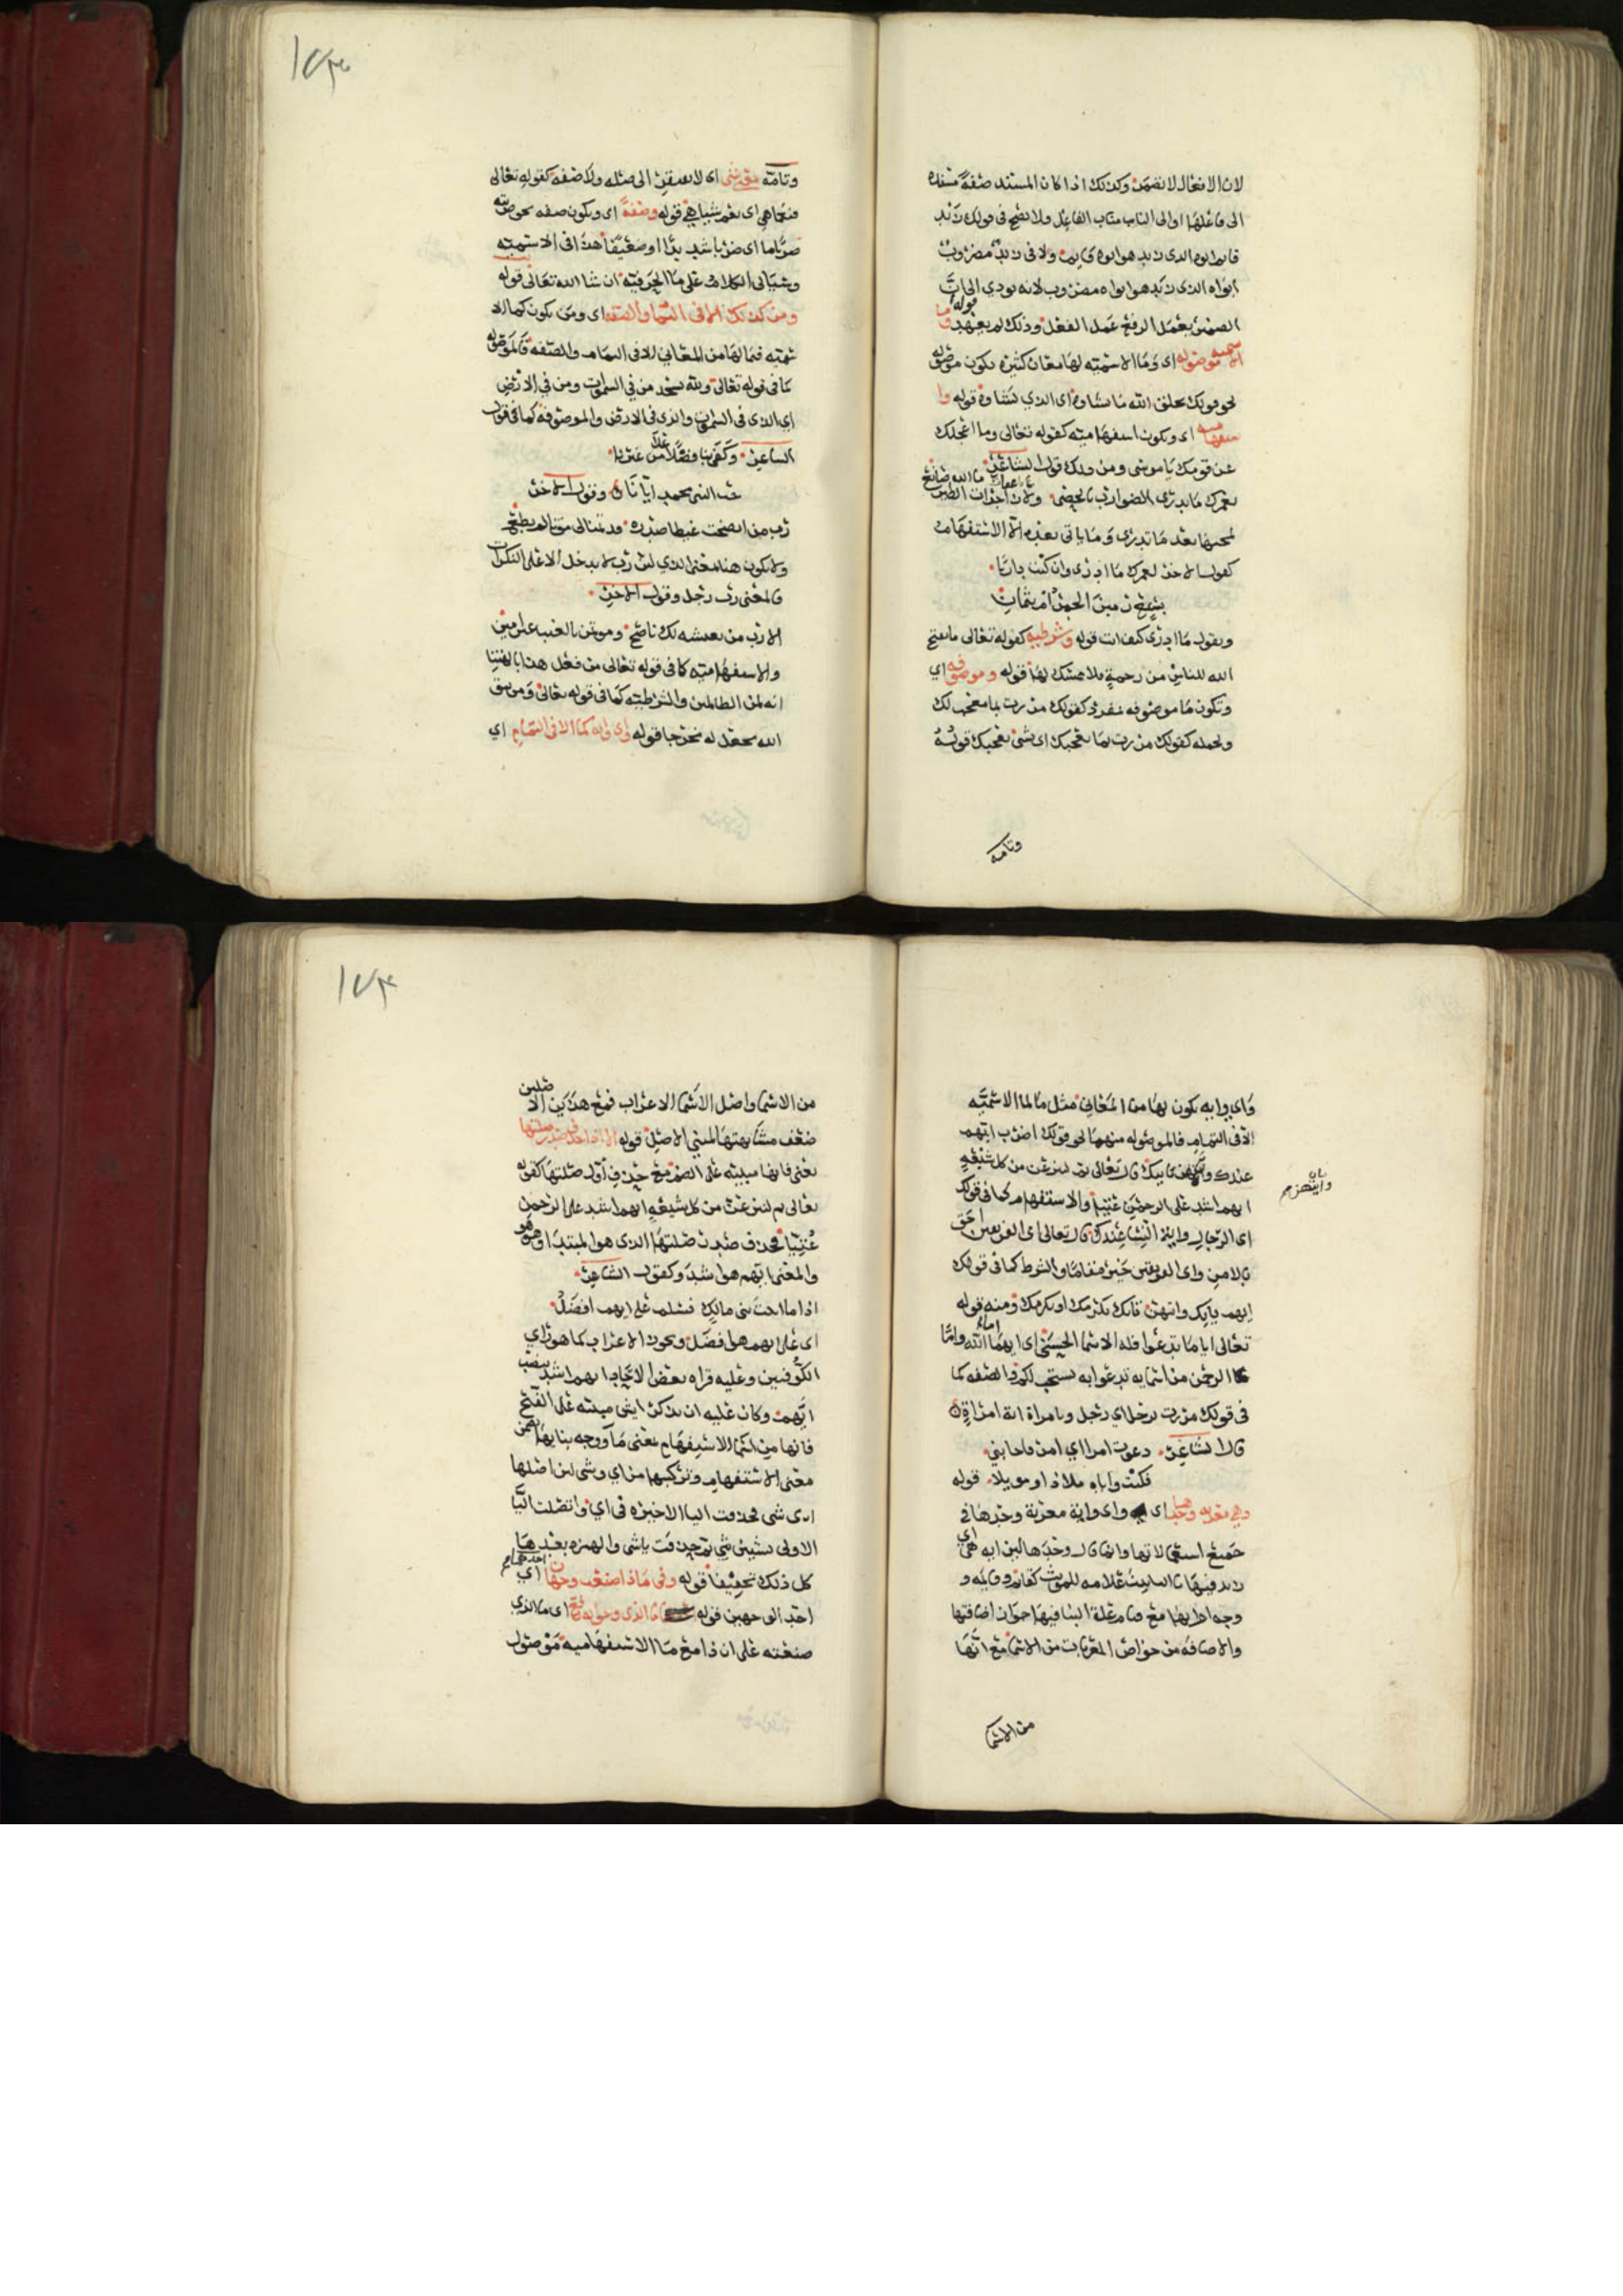 لان الافعال لا تضمر وكذلك اذا كان المسند صفة مسنده
الى فاعلها او الى النايب مناب الفاعل ولا يصح في قولك زيد
قايم ابوه الذي زيد هو ابوه قايم ولا في زيد مضروب
ابواه الذي زيد هو ابواه مضروب لانه يودي الى ان
الضمير يعمل الرفع عمل الفعل وذلك لم يعهد قوله وما
الاسميه موصوله اي وما الاسميه لها معان كثيره تكون موصوله
نحو قولك يخلق الله ما يشاوه اي الذي يشاوه قوله وا
ستفهاميه اي وتكون استفهاميه كقوله تعالى وما اعجلك
عن قومك ياموسى ومن ذلك قول الشاعر
لعمرك ما يدري الضوارب بالحصى ولا زاجرات الطير ما الله صانع
ما تدري وما ياتي بعده الا الاستفهام
كقول الاخر لعمرك ما ادري وان كنت داريا
بسبع رمين الجمر ام بثمان
وتقول ما ادري كيف انت قوله وشرطيه كقوله تعالى ما يفتح
الله للناس من رحمة فلا ممسك لها قوله وموصوفه اي
وتكون ما موصوفه بمفرد كقولك مررت بما معجب لك
وبجمله كقولك مررت بما يعجبك اي بشي يعجبك قوله
وتامه
١٧٣
وتامه بمعنى شي اي لا تفتقر الى صله ولا صفه كقوله تعالى
فنعما هي اي نعم شيا هي قوله وصفة اي وتكون صفه نحو ضربته
ضربا ما اي ضربا شديدا او ضعيفا هذا في الاسميه
وسياتي الكلام على ما الحرفيه ان شا الله تعالى قوله
ومن كذلك الا في التمام والصفه اي ومن تكون كما الا
سميه فيما لها من المعاني الا في التمام والصفه فالموصوله
كما في قوله تعالى ولله يسجد من في السموات ومن في الارض
اي الذي في السموات والذي في الارض والموصوفه كما في قول
الشاعر وكفى بنا فضلا على من غيرنا
حب النبي محمد ايانا وقول الاخر
رب من انضجت غيظا صدره قد تمنالي موتا لم يطع
ولا يكون هنا بمعنى الذي لان رب لا يدخل الا على النكرات
فالمعنى رب رجل وقول الاخر
الا رب من تغتشه لك ناصح وموتمن بالغيب غير امين
والاستفهاميه كما في قوله تعالى من فعل هذا بالهتنا
انه لمن الظالمين والشرطيه كما في قوله تعالى ومن يتق
الله يجعل له مخرجا قوله واي وايه كما الا في التمام اي
واي وايه يكون لها من المعاني مثل ما لما الاسميه
الا في التمام فالموصوله منهما نحو قولك اضرب ايهم
عندك وايتهن ياتيك قال تعالى ثم لننزعن من كل شيعة
ايهم اشد على الرحمن عتيا والاستفهام كما في قولك
اي الرجال واية النسا عندك قال تعالى اي الفريقين احق
بالامن واي الفريقين خير مقاما والشرط كما في قولك
ايهم ياتك وايتهن تاتك يكرمك او تكرمك ومنه قوله
تعالى ايا ما تدعوا فله الاسما الحسنى اي ايهما الله واما
الرحمن من اسمايه تدعوا به يستجب لكم والصفه كما
في قولك مررت برجل اي رجل وبامراة اية امراة
قال الشاعر دعوت امرا اي امر فاجابني
فكنت واياه ملاذا وموئلا قوله
وهي معربه وحدها اي واي واية معربة وحدها في
جميع اسمى لاتها وانما قال وحدها
وجه اعرابها مع قيام علة البنا فيها جواز اضافتها
والاضافه من خواص المعربات من الاسما مع انها
من الاسما
١٧٤
من الاسما واصل الاسما الاعراب فمع هذين الاصلين
ضعف مشابهتها لمبني الاصل قوله الا اذا حذف صدر صلتها
يعني فانها مبنيه على الضم مع حذف اول صلتها كقوله
تعالى ثم لننزعن من كل شيعة ايهم اشد على الرحمن
عتيا فحذف صدر صلتها الذي هو المبتدا وهو هو
والمعنى ايهم هو اشد وكقول الشاعر
اذا ما اتيت بني مالك فسلم على ايهم افضل
اي على ايهم هو افضل ويجوز الاعراب كما هو راي
الكوفيين وعليه قراه بعض ايهم اشد بنصب
ايهم وكان عليه ان يذكر ايش مبنيه على الفتح
فانها من اسما الاستفهام بمعنى ما ووجه بنايها تضمن
معنى الاستفهام وتركيبها من اي وشي لان اصلها
اي شي فحذفت اليا الاخيره في اي واتصلت اليا
الاولى بشين شي ثم حذفت يا شي والهمزه بعدها
كل ذلك تخفيفا قوله وفي ماذا صنعت وجهان اي
احدهما ما الذي وجوابه رفع اي ما الذي
صنعته على ان ذا مع ما الاستفهاميه موصول